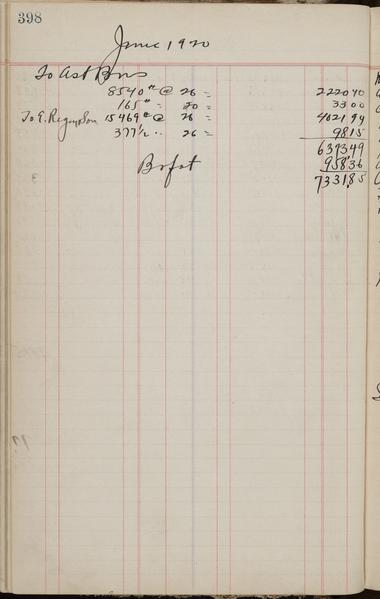 398
June 1920
To Ast Bros
8540 # @ 26 = 2220 40
165 " = 20 = 33 00
To E. 15469 # @ 26 = 4021 94
377½ " 26 = 98 15
6373 49
958 36
7331 85